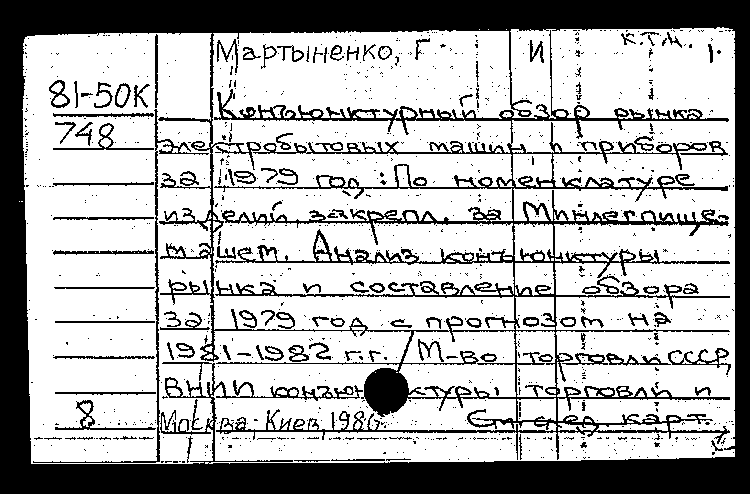 к.т.н. 1.
Мартыненко, Г. И
81-50К
Конъюнктурный обзор рынка
748
электробытовых машин и приборов
за 1979 год : По номенклатуре
изделий, закрепл. за Минлегпище-
машем. Анализ конъюнктуры
рынка и составление обзора
за 1979 год с прогнозом на
1981-1982 г.г. М-во торговли СССР,
ВНИИ конъюнктуры торговли и
8
Москва; Киев, 1980. См. след. карт.